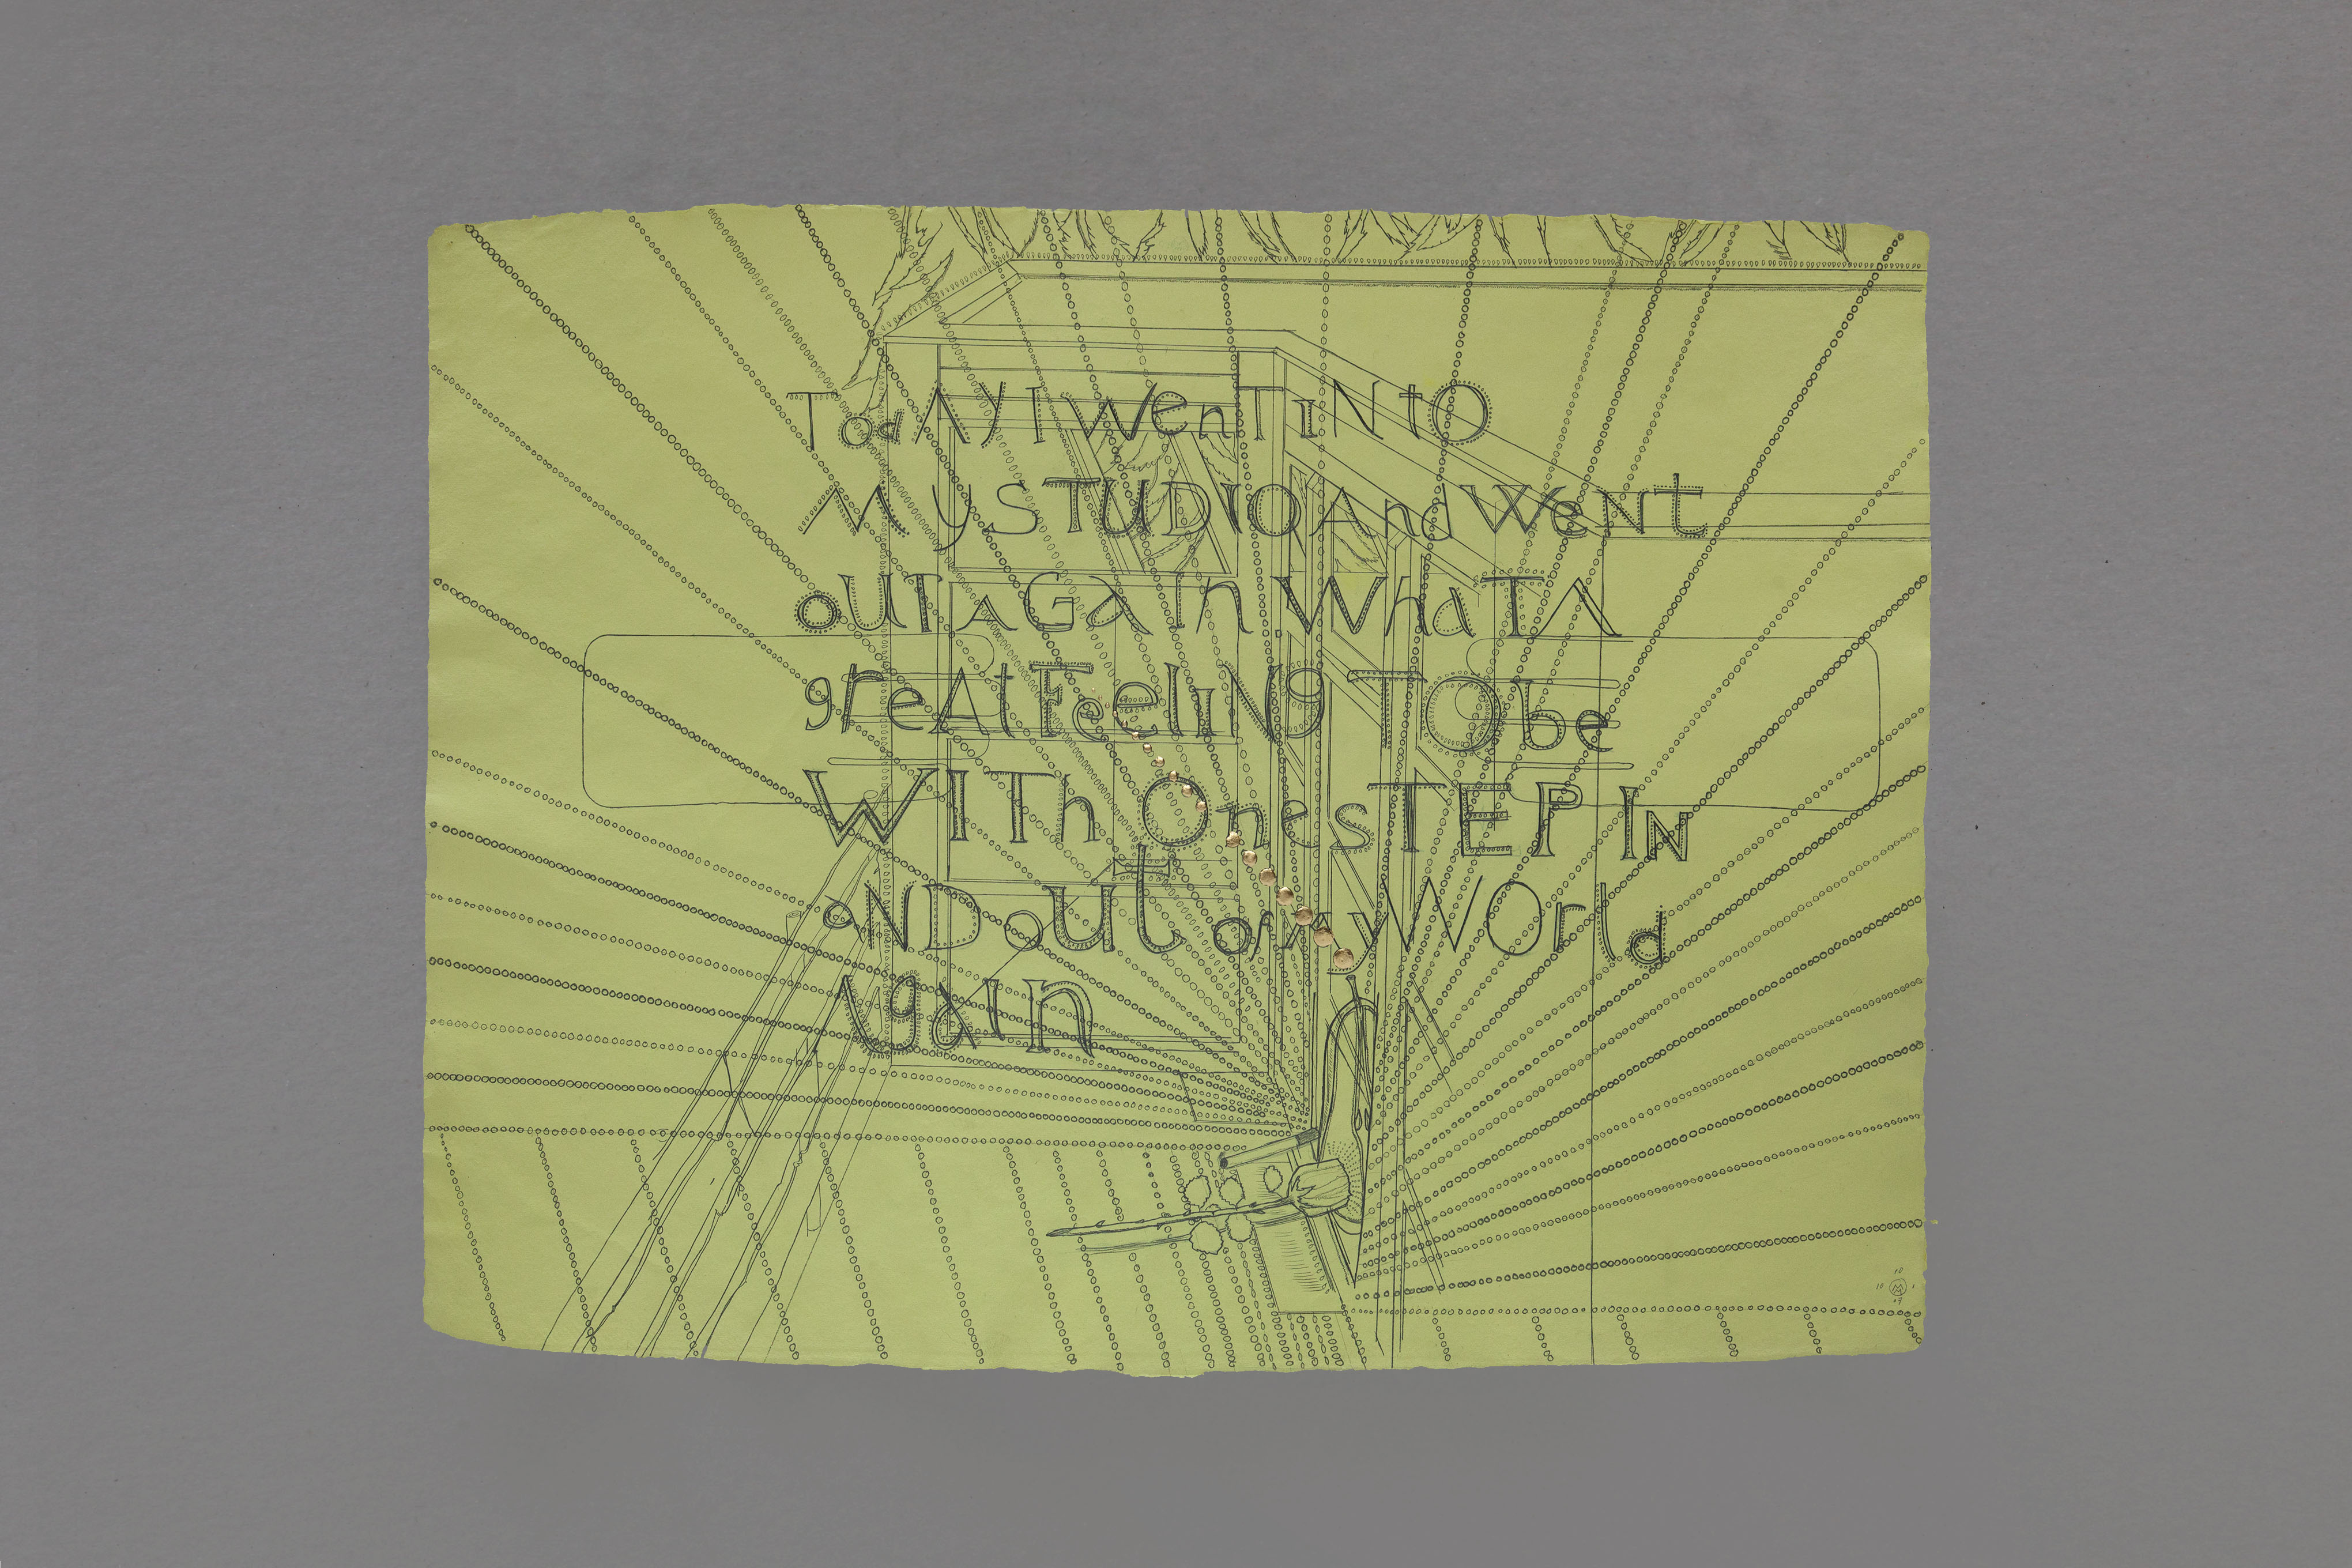 TodAY I WenT INtO
MY STUDIO And WeNt
oUT AGaIn WhaT A
greAt FeelINg TO be
WITh One sTEP IN
aND oUt of MY WOrld
AgaIn